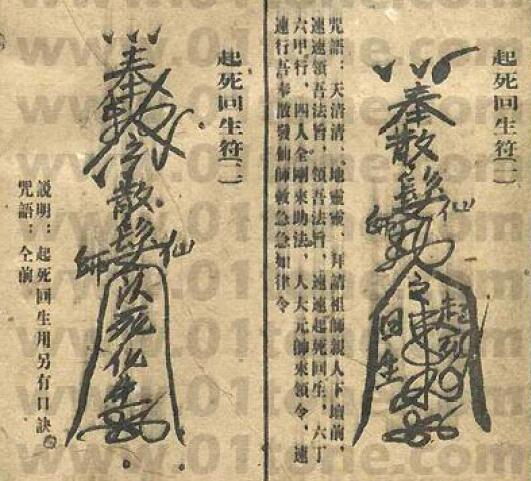 起死回生符(一)
奉散髮仙師勅令
起死回生
咒語:天清清、地靈靈、拜請祖師親人下壇前,
速速領吾法旨、領吾法旨、速速起死回生、六丁
六甲行、四人全剛來助法,人大元帥來領令、速
速行吾奉散發仙師敕急急如律令
起死回生符(二)
奉勅令散髮仙師
死化生
說明:起死回生用另有口訣。
咒語:仝前